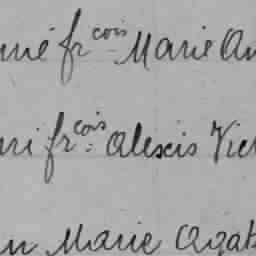 né frçois Marie An
ri frçois Alexis Vic
n Marie Agat